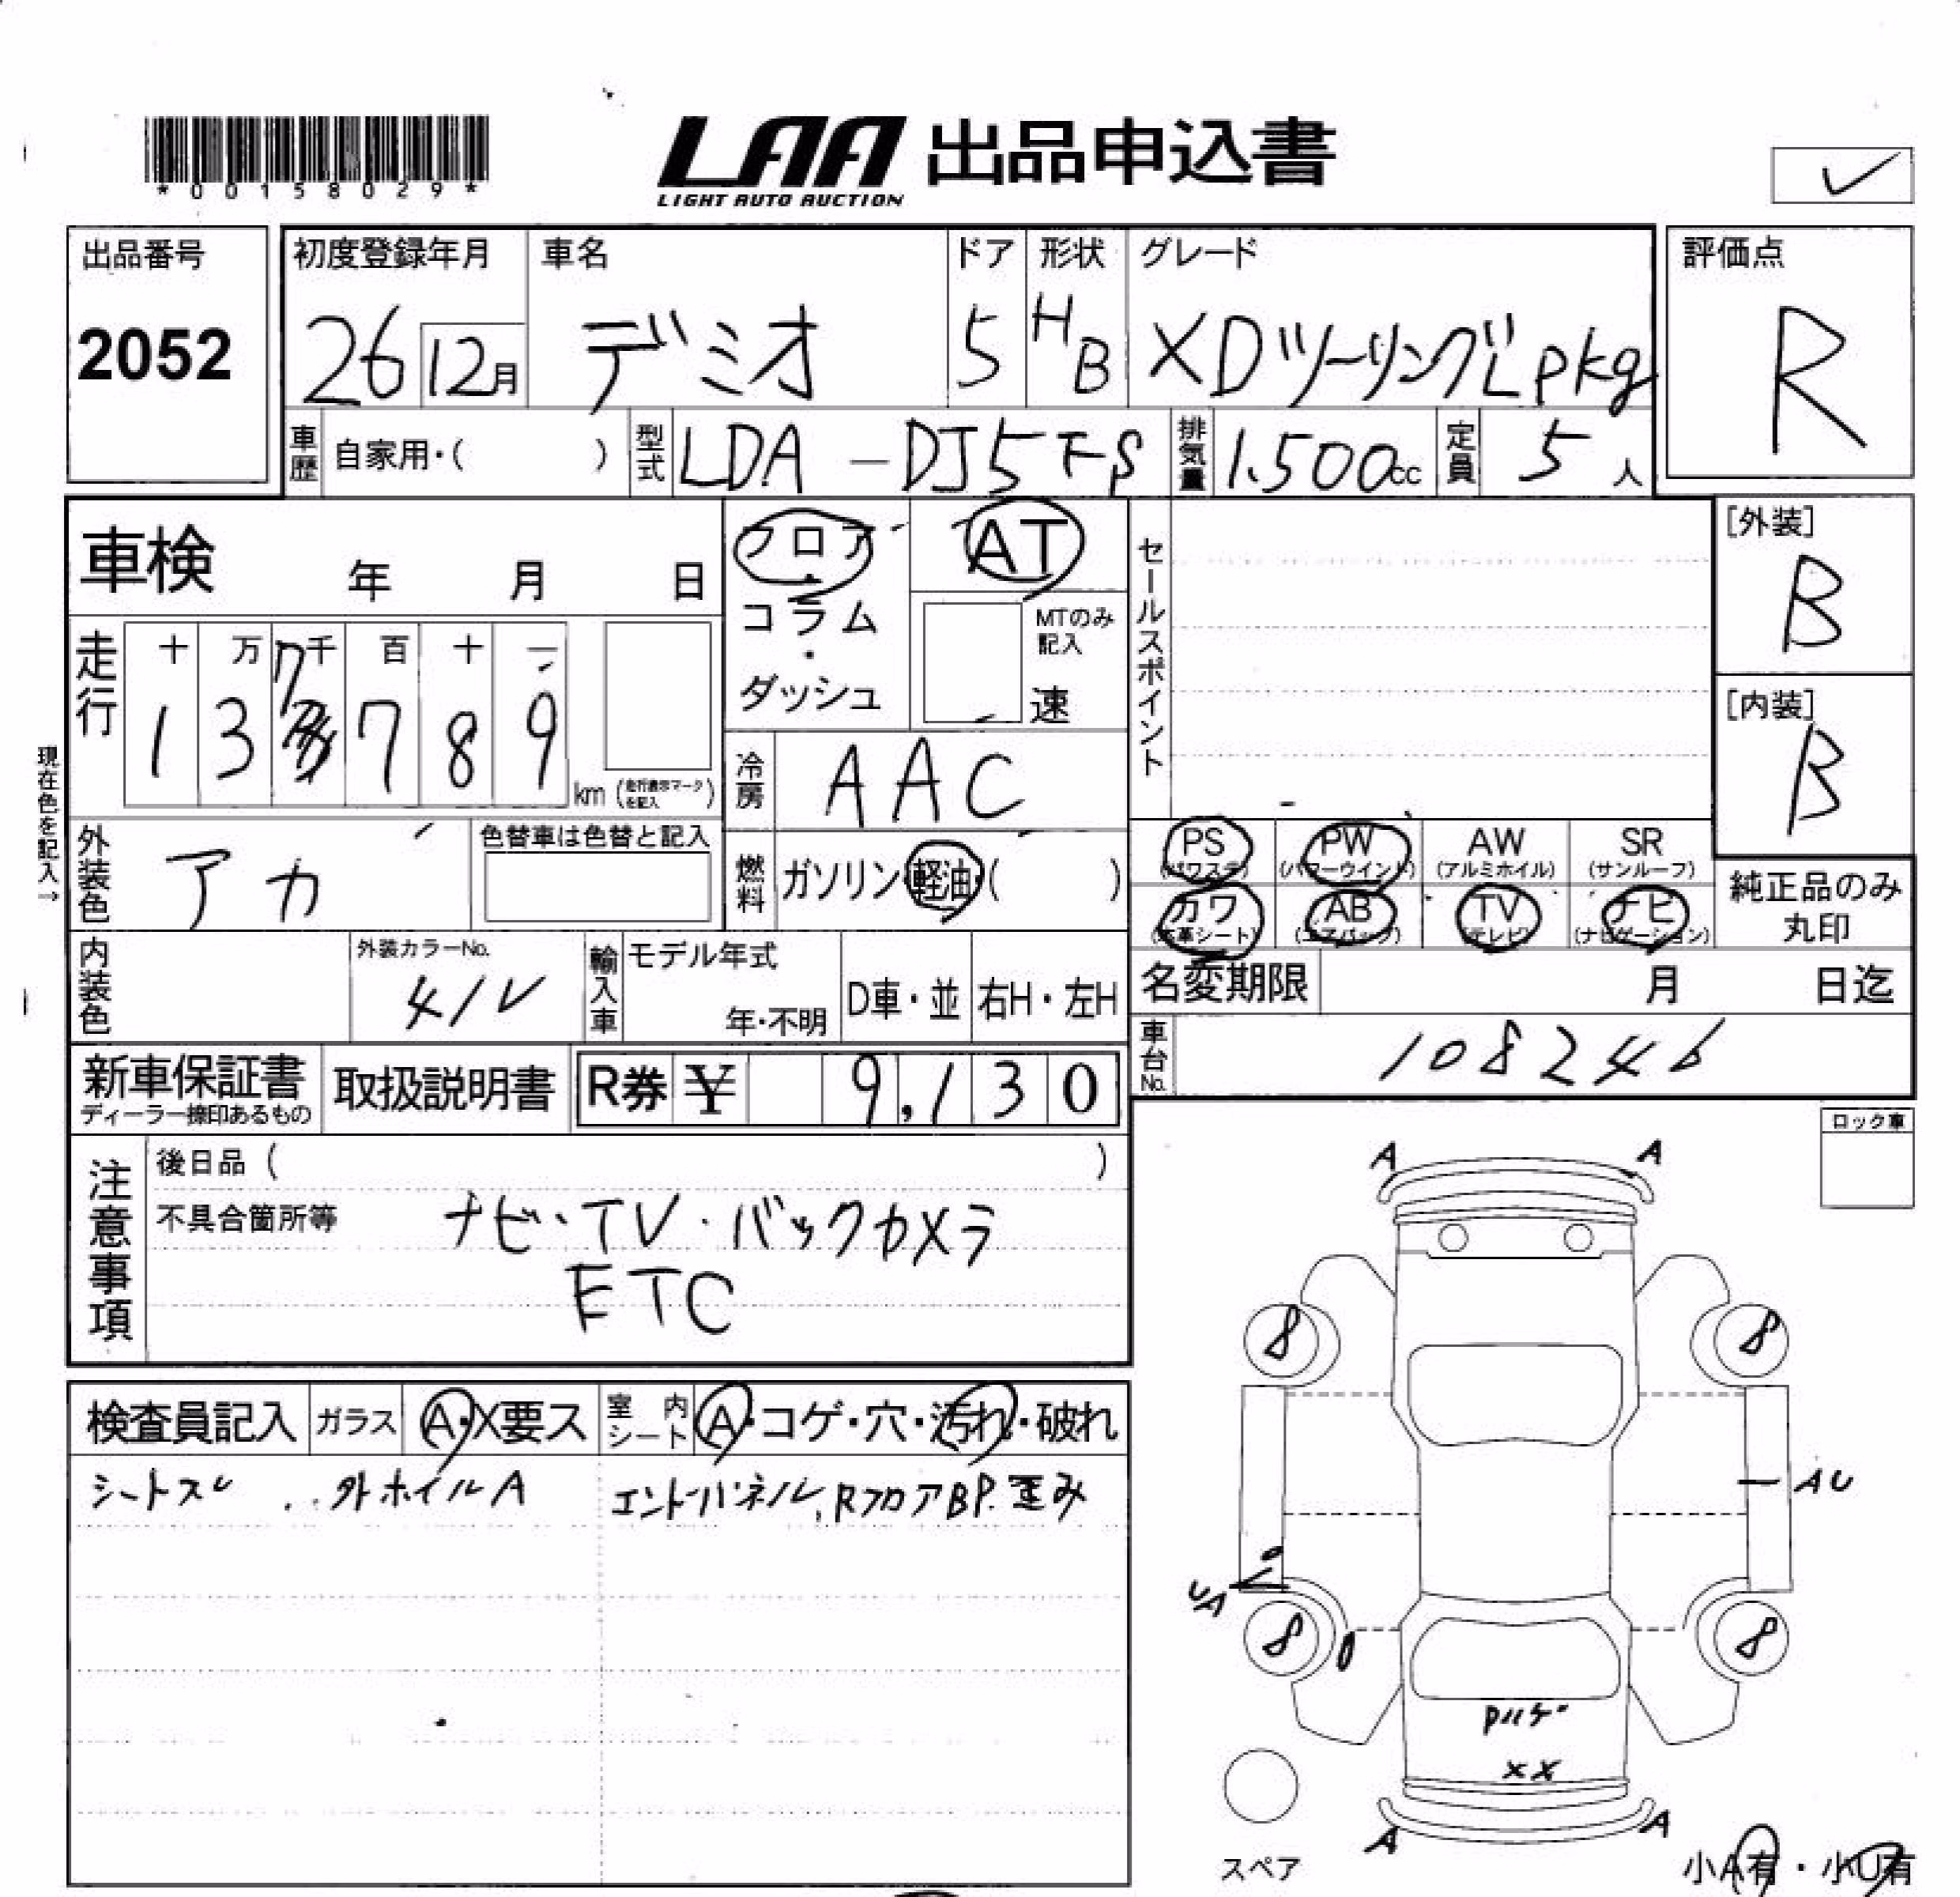 *00158029*
LAA 出品申込書
LIGHT AUTO AUCTION
✓
出品番号
2052
初度登録年月
26 12月
車名
デミオ
ドア
5
形状
HB
グレード
XDツーリングLpkg
評価点
R
車歴 自家用・( )
型式 LDA-DJ5FS
排気量 1.500cc
定員 5人
車検 年 月 日
フロア・コラム・ダッシュ
AT
MTのみ記入
速
セールスポイント
[外装]
B
[内装]
B
走行
十 万 千 百 十 一
1 3 7 7 8 9
km (走行表示マークを記入)
冷房 AAC
現在色を記入→
外装色 アカ
色替車は色替と記入
燃料 ガソリン・軽油・( )
PS (パワステ)
PW (パワーウインド)
AW (アルミホイル)
SR (サンルーフ)
カワ (本革シート)
AB (エアバッグ)
TV (テレビ)
ナビ (ナビゲーション)
純正品のみ丸印
内装色
外装カラーNo.
41V
輸入車
モデル年式
年・不明
D車・並
右H・左H
名変期限 月 日迄
車台No. 108246
新車保証書
ディーラー捺印あるもの
取扱説明書
R券 ¥ 9,130
注意事項
後日品( )
不具合箇所等
ナビ・TV・バックカメラ
ETC
ロック車
検査員記入
ガラス A・X要ス
室内シート A・コゲ・穴・汚れ・破れ
シートスレ
外ホイルA
エンドパネル,RフロアBP.歪み
A A
8 8
AU
UA
8 8
XX
A A
スペア
小A有・小U有